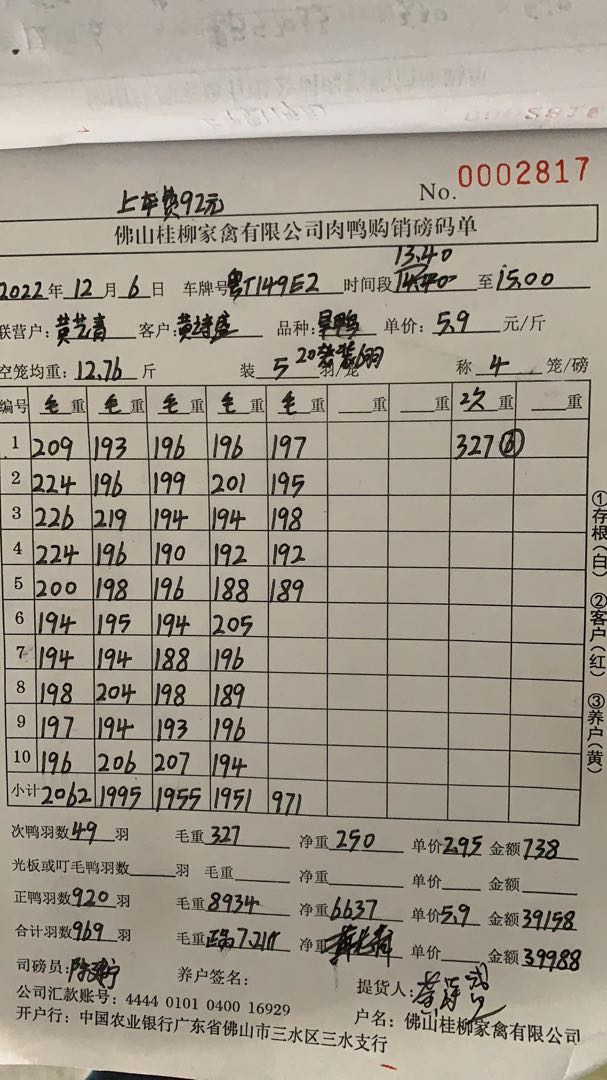 No. 0002817
上车费92元
佛山桂柳家禽有限公司肉鸭购销磅码单
13.40
2022年 12月 6日 车牌号 粤T149E2 时间段 至 15.00
联营户: 黄艺青 客户: 黄诗盛 品种: 旱鸭 单价: 5.9 元/斤
空笼均重: 12.76 斤 装 5 羽/笼 20笼装6羽 称 4 笼/磅
编号 毛重 毛重 毛重 毛重 毛重 重 重 次重 重
1 209 193 196 196 197 327 ⑥
2 224 196 199 201 195
3 226 219 194 194 198
4 224 196 190 192 192
5 200 198 196 188 189
6 194 195 194 205
7 194 194 188 196
8 198 204 198 189
9 197 194 193 196
10 196 206 207 194
小计 2062 1995 1955 1951 971
次鸭羽数 49 羽 毛重 327 净重 250 单价 2.95 金额 738
光板或叮毛鸭羽数 羽 毛重 净重 单价 金额
正鸭羽数 920 羽 毛重 8934 净重 6637 单价 5.9 金额 39158
合计羽数 969 羽 毛重 正品7.21斤 净重 单价 金额 39988
司磅员: 养户签名: 提货人:
公司汇款账号: 4444 0101 0400 16929 户名: 佛山桂柳家禽有限公司
开户行: 中国农业银行广东省佛山市三水区三水支行
①存根(白) ②客户(红) ③养户(黄)